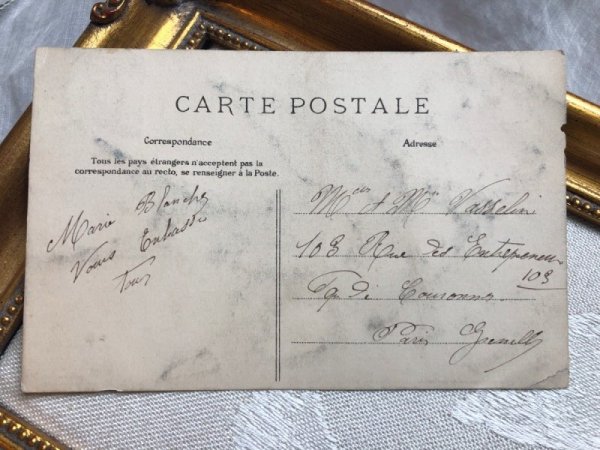 CARTE POSTALE
Correspondance
Adresse
Tous les pays étrangers n'acceptent pas la
correspondance au recto, se renseigner à la Poste.
Marie Blanche
Vous Embrasse
Tous
Mr Vasselin
108 Rue des Entrepreneur
108
Paris Grenelle